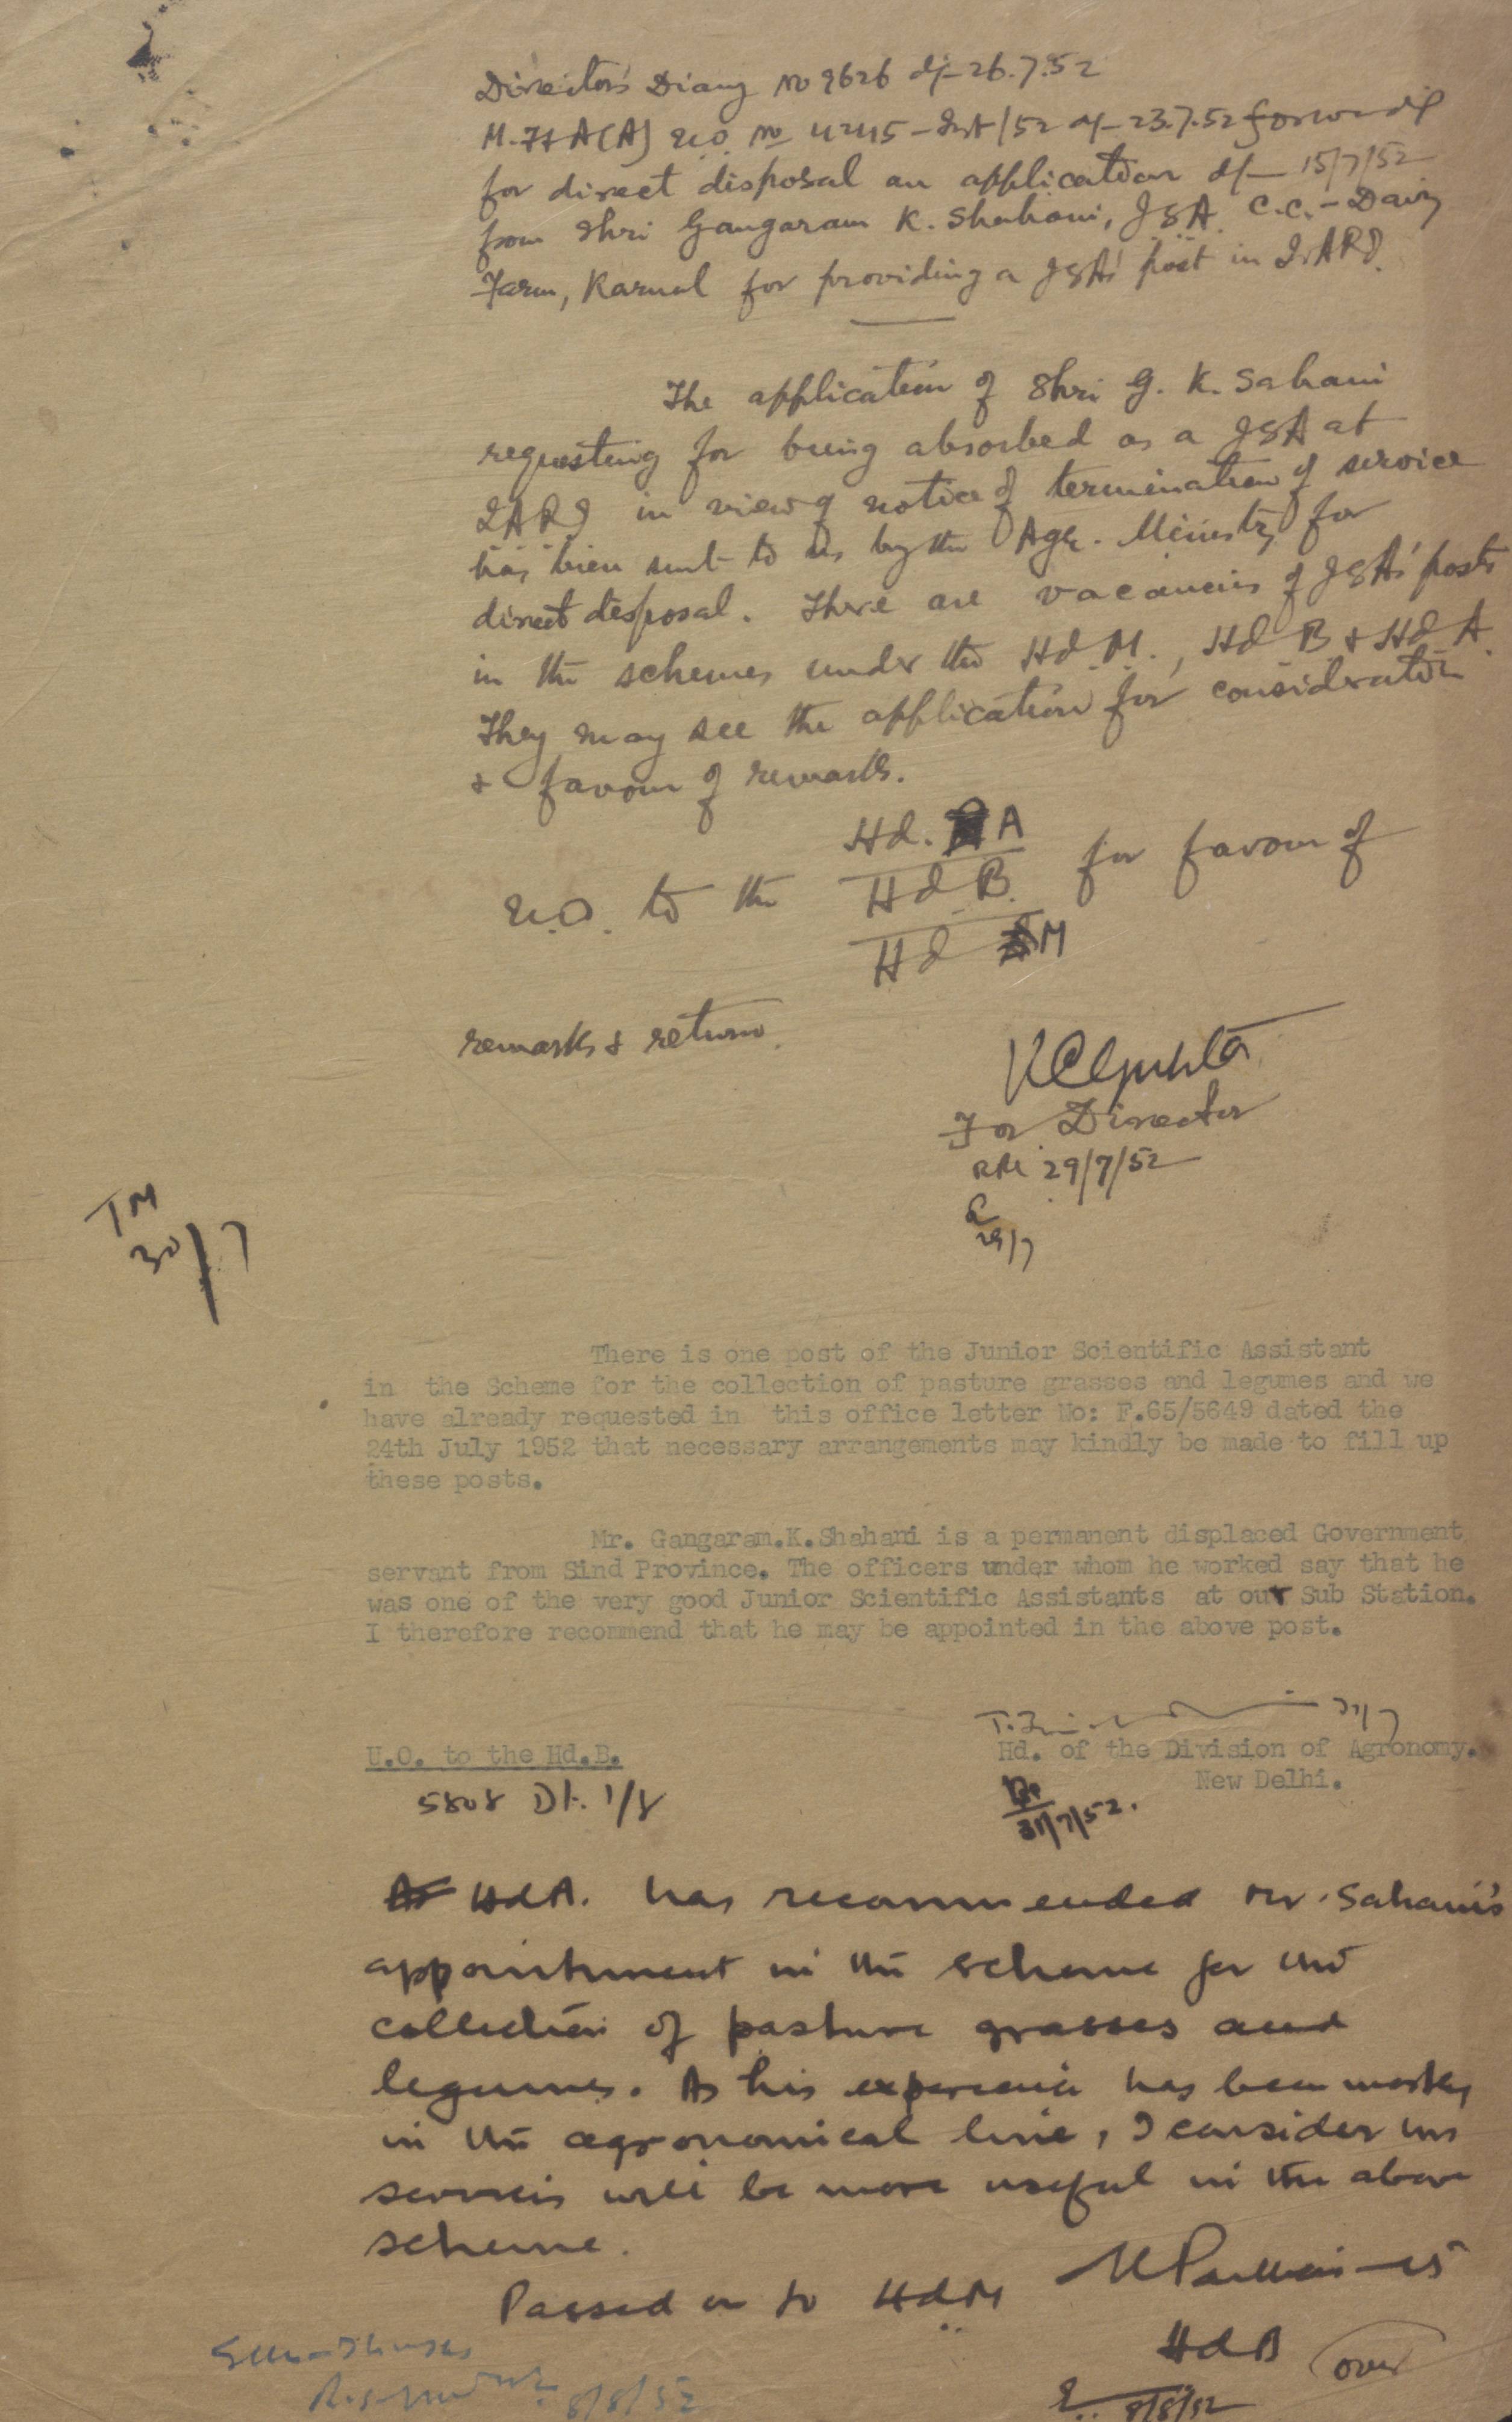 Director's Diary No 9626 d/- 26.7.52
M. F & A (A) u.o. No 4245 - Inst/52 d/- 23.7.52 forwardg
for direct disposal an application d/- 15/7/52
from Shri Gangaram K. Shahani, JSA. C.C. - Dairy
Farm, Karnal for providing a JSA's post in I.A.R.I.
The application of Shri G. K. Sahani
requesting for being absorbed as a JSA at
IARI in view of notice of termination of service
has been sent to us by the Agr. Ministry for
direct disposal. There are vacancies of JSAs' posts
in the schemes under the Hd. M., Hd B & Hd A.
They may see the application for consideration
& favour of remarks.
u.o. to the Hd. A / Hd B. / Hd M for favour of
remarks & return.
KCGupta
For Director
29/7/52
29/7
TM
30/7
There is one post of the Junior Scientific Assistant
in the Scheme for the collection of pasture grasses and legumes and we
have already requested in this office letter No: F.65/5649 dated the
24th July 1952 that necessary arrangements may kindly be made to fill up
these posts.
Mr. Gangaram.K.Shahani is a permanent displaced Government
servant from Sind Province. The officers under whom he worked say that he
was one of the very good Junior Scientific Assistants at our Sub Station.
I therefore recommend that he may be appointed in the above post.
31/7
U.O. to the Hd.B.
Hd. of the Division of Agronomy.
New Delhi.
5808 Dt. 1/8
31/7/52.
HdA. has recommended Mr. Sahani's
appointment in the scheme for the
collection of pasture grasses and
legumes. As his experience has been mostly
in the agronomical line, I consider his
services will be more useful in the above
scheme.
Passed on to HdM
HdB
over
8/8/52
8/8/52